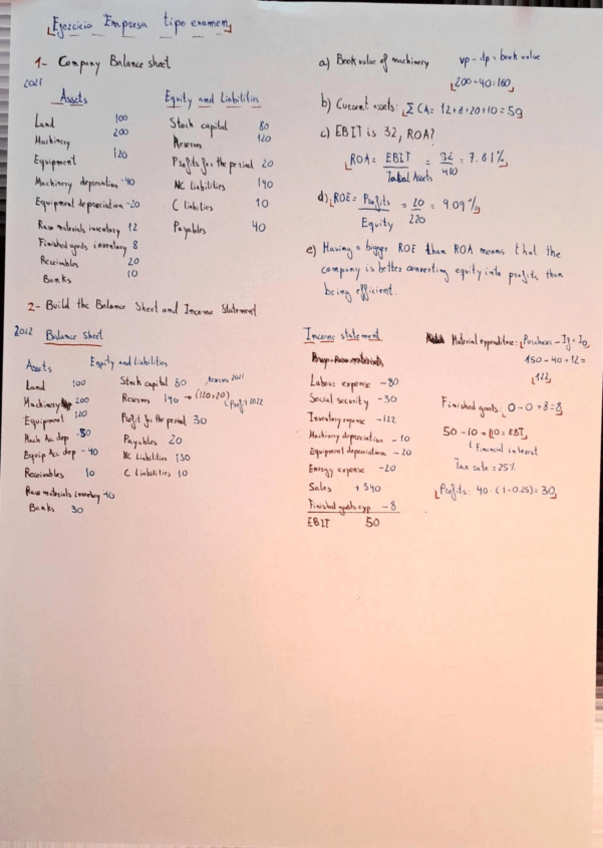 Ejercicio Empresa tipo examen
1- Company Balance sheet
2021
Assets
Land 100
Machinery 200
Equipment 120
Machinery depreciation -40
Equipment depreciation -20
Raw materials inventory 12
Finished goods inventory 8
Receivables 20
Banks 10
Equity and Liabilities
Stock capital 80
Reserves 120
Profits for the period 20
NC liabilities 140
C liabilities 10
Payables 40
a) Book value of machinery vp - dp = book value
200 - 40 = 160
b) Current assets: ∑ CA = 12+8+20+10 = 50
c) EBIT is 32, ROA?
ROA = EBIT / Total Assets = 32 / 410 = 7.81%
d) ROE = Profits / Equity = 20 / 220 = 9.09%
e) Having a bigger ROE than ROA means that the
company is better converting equity into profits than
being efficient.
2- Build the Balance Sheet and Income Statement
2022 Balance sheet
Assets
Land 100
Machinery 200
Equipment 120
Mach Acc dep -50
Equip Acc dep -40
Receivables 10
Raw materials inventory 40
Banks 30
Equity and Liabilities
Stock capital 80
Reserves 140 → (120+20)
Reserves 2021
Profit for the period 30
Payables 20
NC Liabilities 130
C Liabilities 10
Income statement
Labour expense -80
Social security -30
Inventory expense -122
Machinery depreciation -10
Equipment depreciation -20
Energy expense -20
Sales +340
Finished goods exp -8
EBIT 50
Material expenditure: Purchases - If + Io
150 - 40 + 12 =
122
Finished goods: 0 - 0 + 8 = 8
50 - 10 = 40 = EBT
Financial interest
Tax rate = 25%
Profits: 40 · (1-0.25) = 30